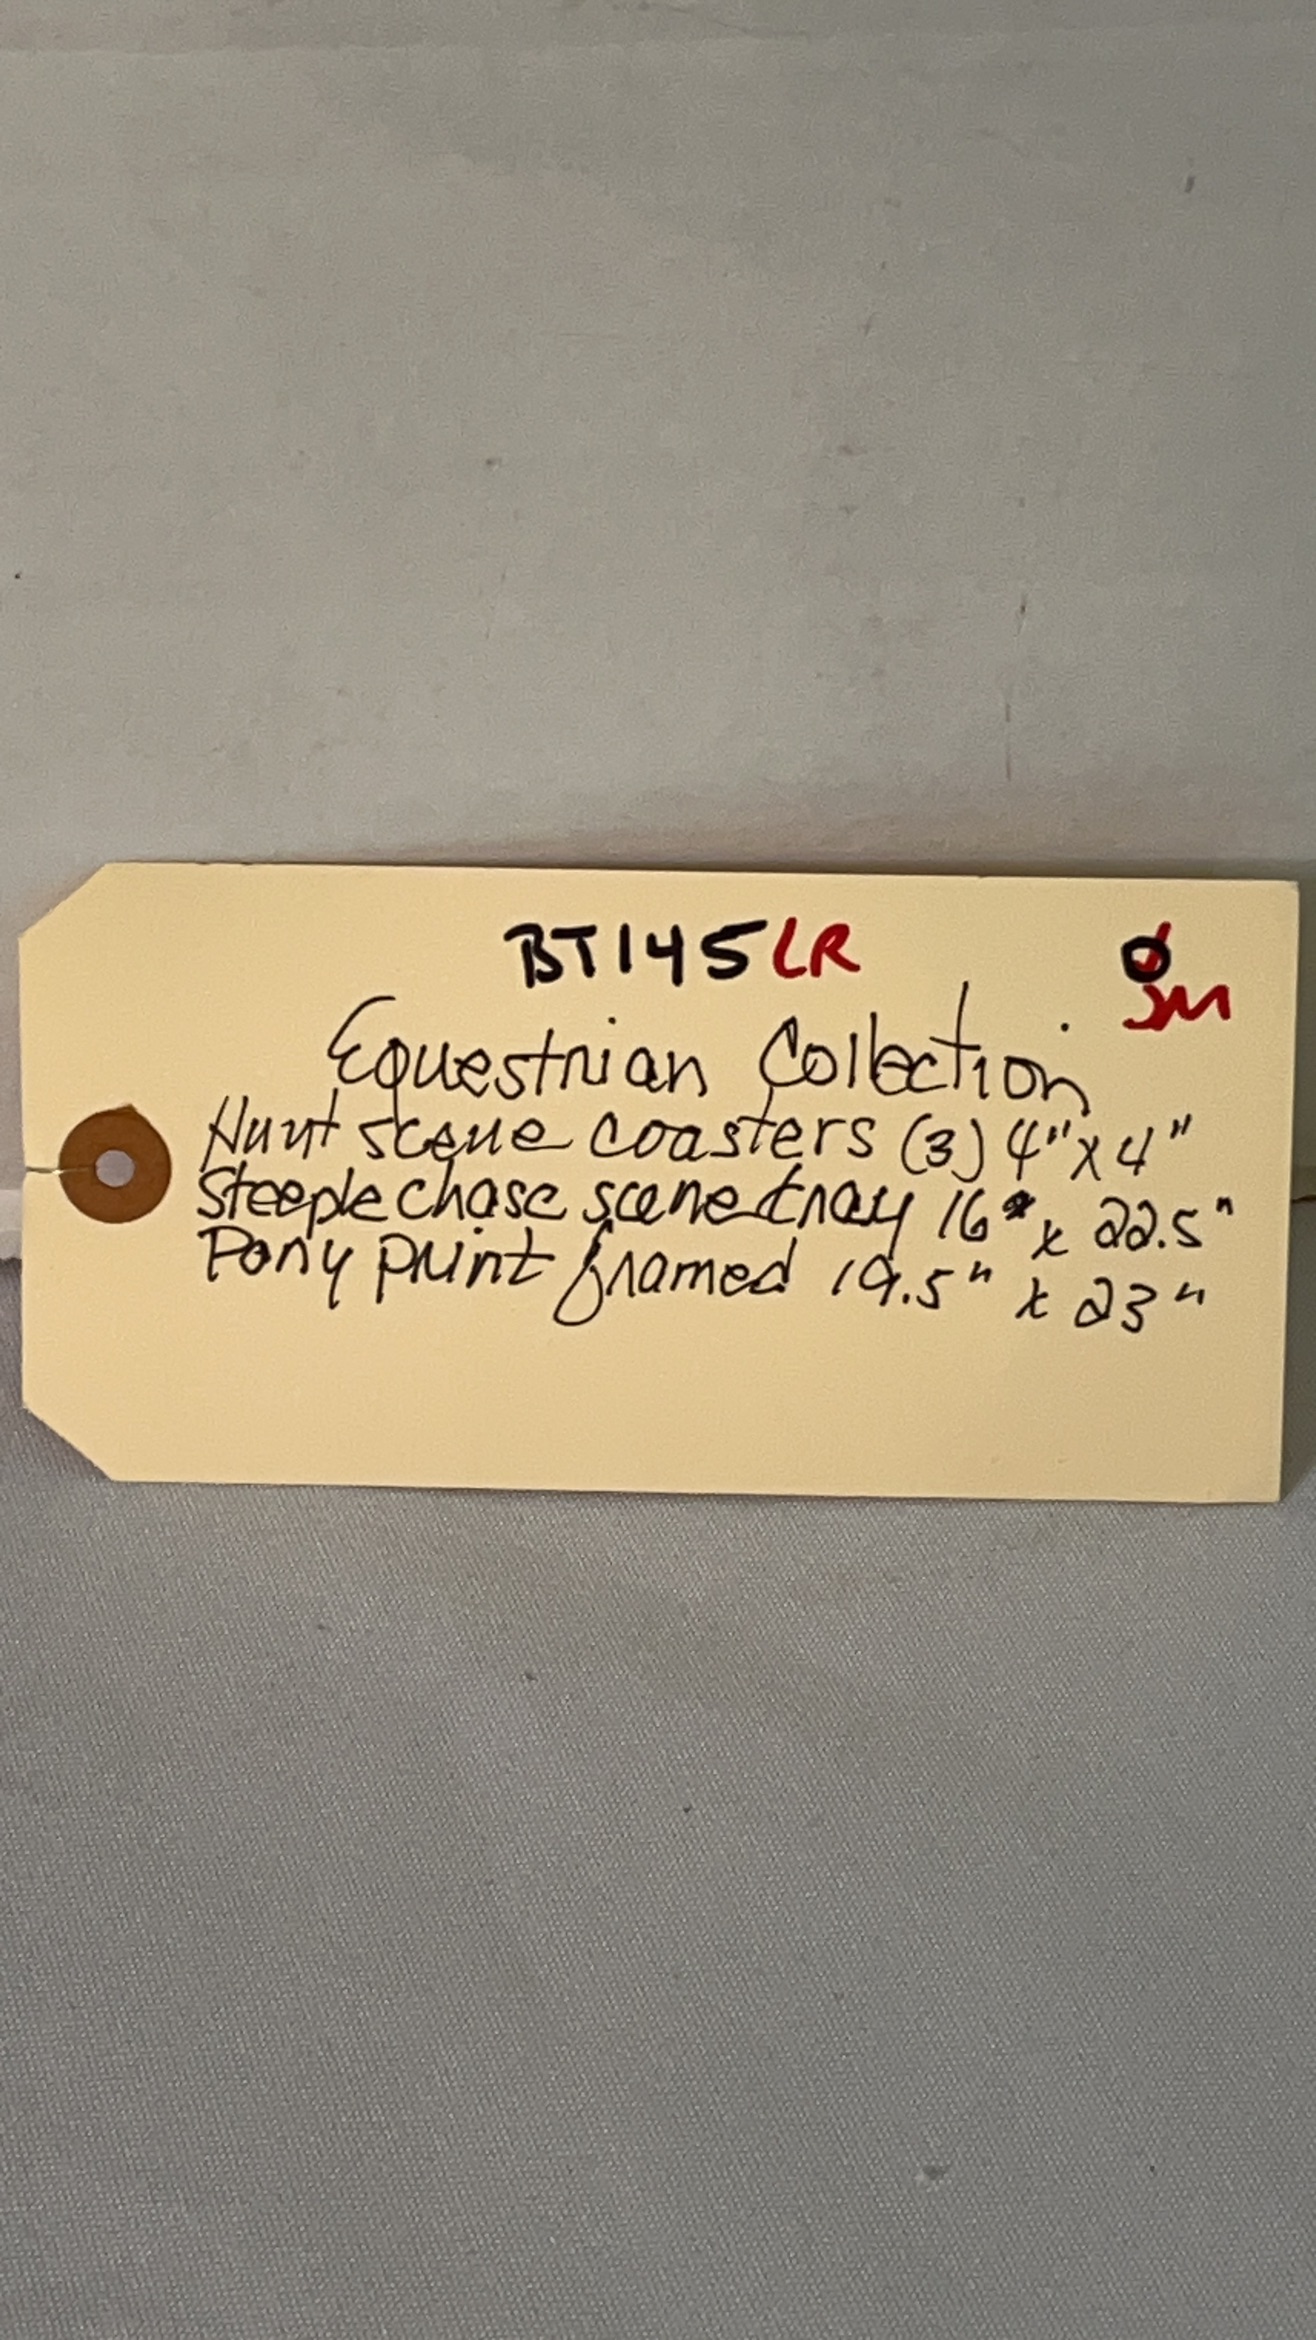 BT145LR
JM
Equestrian Collection
Hunt scene coasters (3) 4" x 4"
Steeple chase scene tray 16" x 22.5"
Pony print framed 19.5" x 23"